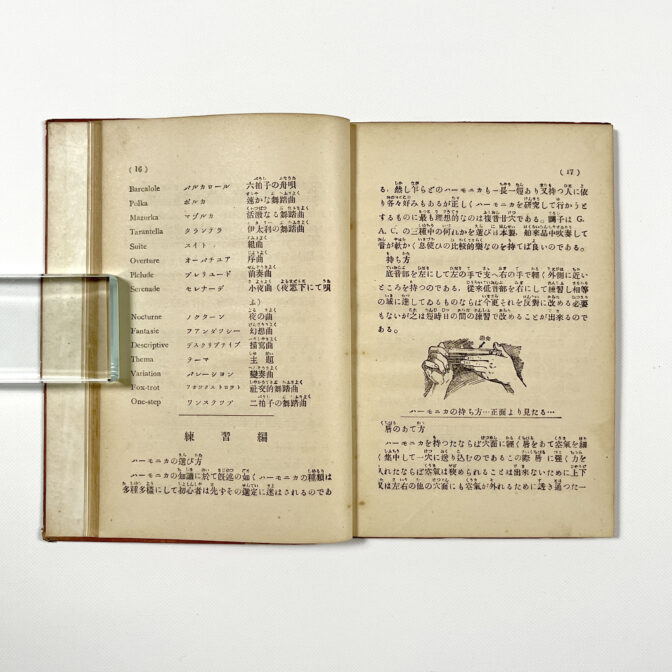 (16)
Barcalole バルカロール 六拍子の舟唄
Polka ポルカ 速かな舞踏曲
Mazurka マヅルカ 活潑なる舞踏曲
Tarantella タランテラ 伊太利の舞踏曲
Suite スイト 組曲
Overture オーバチュア 序曲
Plelude プレリュード 前奏曲
Serenade セレナーデ 小夜曲(夜窓下にて唄
ふ)
Nocturne ノクターン 夜の曲
Fantasic ファンダツシー 幻想曲
Descriptive デスクリプテイブ 描寫曲
Thema テーマ 主題
Variation バレーシヨン 變奏曲
Fox-trot フオツクストロツト 社交的舞踏曲
One-step ワンステツプ 二拍子の舞踏曲
練習編
ハーモニカの選び方
ハーモニカの知識に於て既述の如くハーモニカの種類は
多種多樣にして初心者は先すその選定に迷はされるのであ
(17)
る、然し乍らどのハーモニカも一長一短あり又持つ人に依
り各々好みもあるが正しくハーモニカを研究して行かうと
するものに最も理想的なのは複音廿六である。調子は G.
A. C. の三種中の何れかを選びは本製、舶來品中吹奏して
音が軟かく息使ひの比較的樂なのを持てば良いのである。
持ち方
底音部を左にして左の手で支へ右の手で輕く外側に近い
ところを持つのである、從來低音部を右にして練習し相等
の域に達してゐるものならば今更それを反對に改める必要
もないが之は短時日の間の練習で改めることが出來るので
ある。
ハーモニカの持ち方…正面より見たる…
唇のあて方
ハーモニカを持つたならば穴面に輕く唇をあて空氣を細
く集中して一穴に送り込むのであるこの際唇に强く力を
入れたならば空氣は狹められることは出來ないために上下
又は左右の他の穴面にも空氣が外れるために透き通つた一